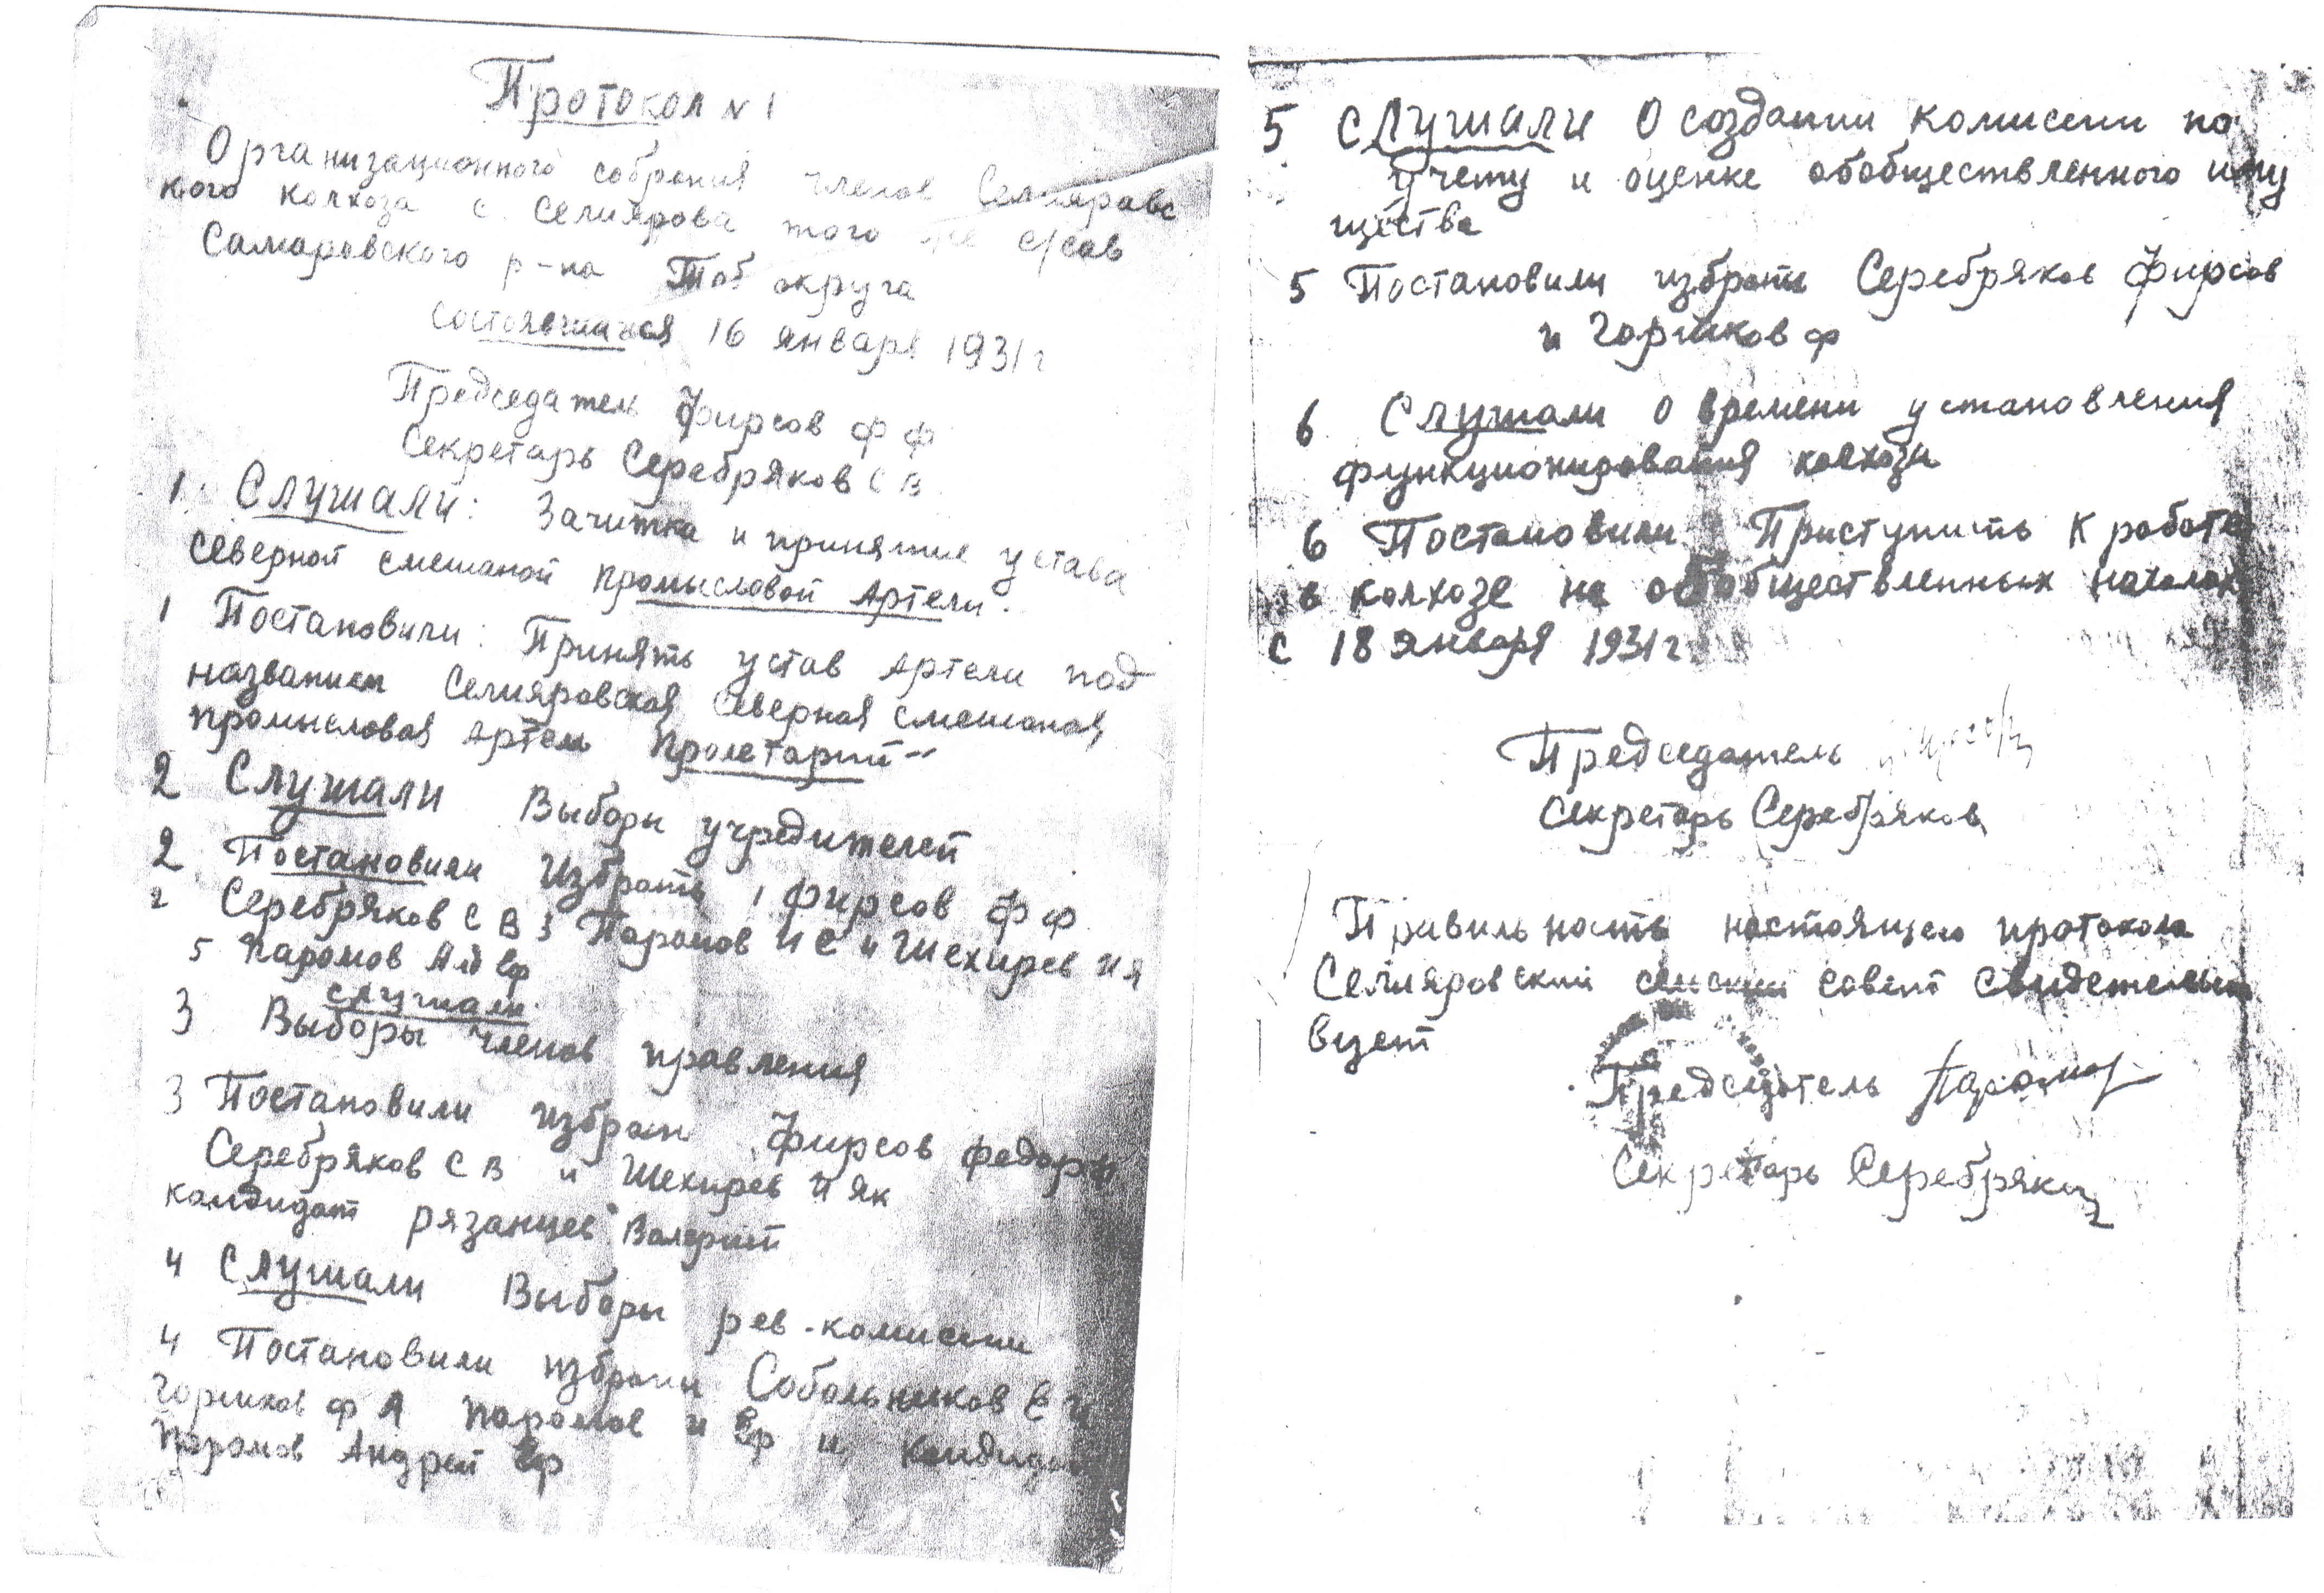 Протокол N 1
Организационного собрания членов Селияровс
кого колхоза с. Селиярова того же с/сов
Самаровского р-на Тоб округа
состоявшийся 16 января 1931 г
Председатель Фирсов Ф Ф
Секретарь Серебряков С В
1. Слушали: Зачитка и принятие устава
северной смешаной промысловой Артели.
1 Постановили: Принять устав Артели под
названием Селияровская Северная смешаная
промысловая артель Пролетарий"
2 Слушали Выборы учредителей
2 Постановили Избрать 1 Фирсов Ф Ф
2 Серебряков С В 3 Паромов И С 4 Шехирев И Я
5 Паромов Ан Еф
слушали
3 Выборы членов правления
3 Постановили избрать Фирсов Федор Ф
Серебряков С В и Шехирев И Як
кандидат рязанцев Валерий
4 Слушали Выборы рев-комиссии
4 Постановили избрать Собольников Е И
Горшков Ф А Паромов И Еф и кандидат
Паромов Андрей Еф
5 Слушали О создании комиссии по
учету и оценке обобществленного иму
щества
5 Постановили избрать Серебряков Фирсов
и Горшков Ф
6 Слушали О времени установления
функционирования колхоза
6 Постановили Приступить к работе
в колхозе на обобществленных началах
с 18 января 1931 г
Председатель
Секретарь Серебряков
Правильность настоящего протокола
Селияровский сельский совет свидетельст
вует
Председатель Паромов
Секретарь Серебряков